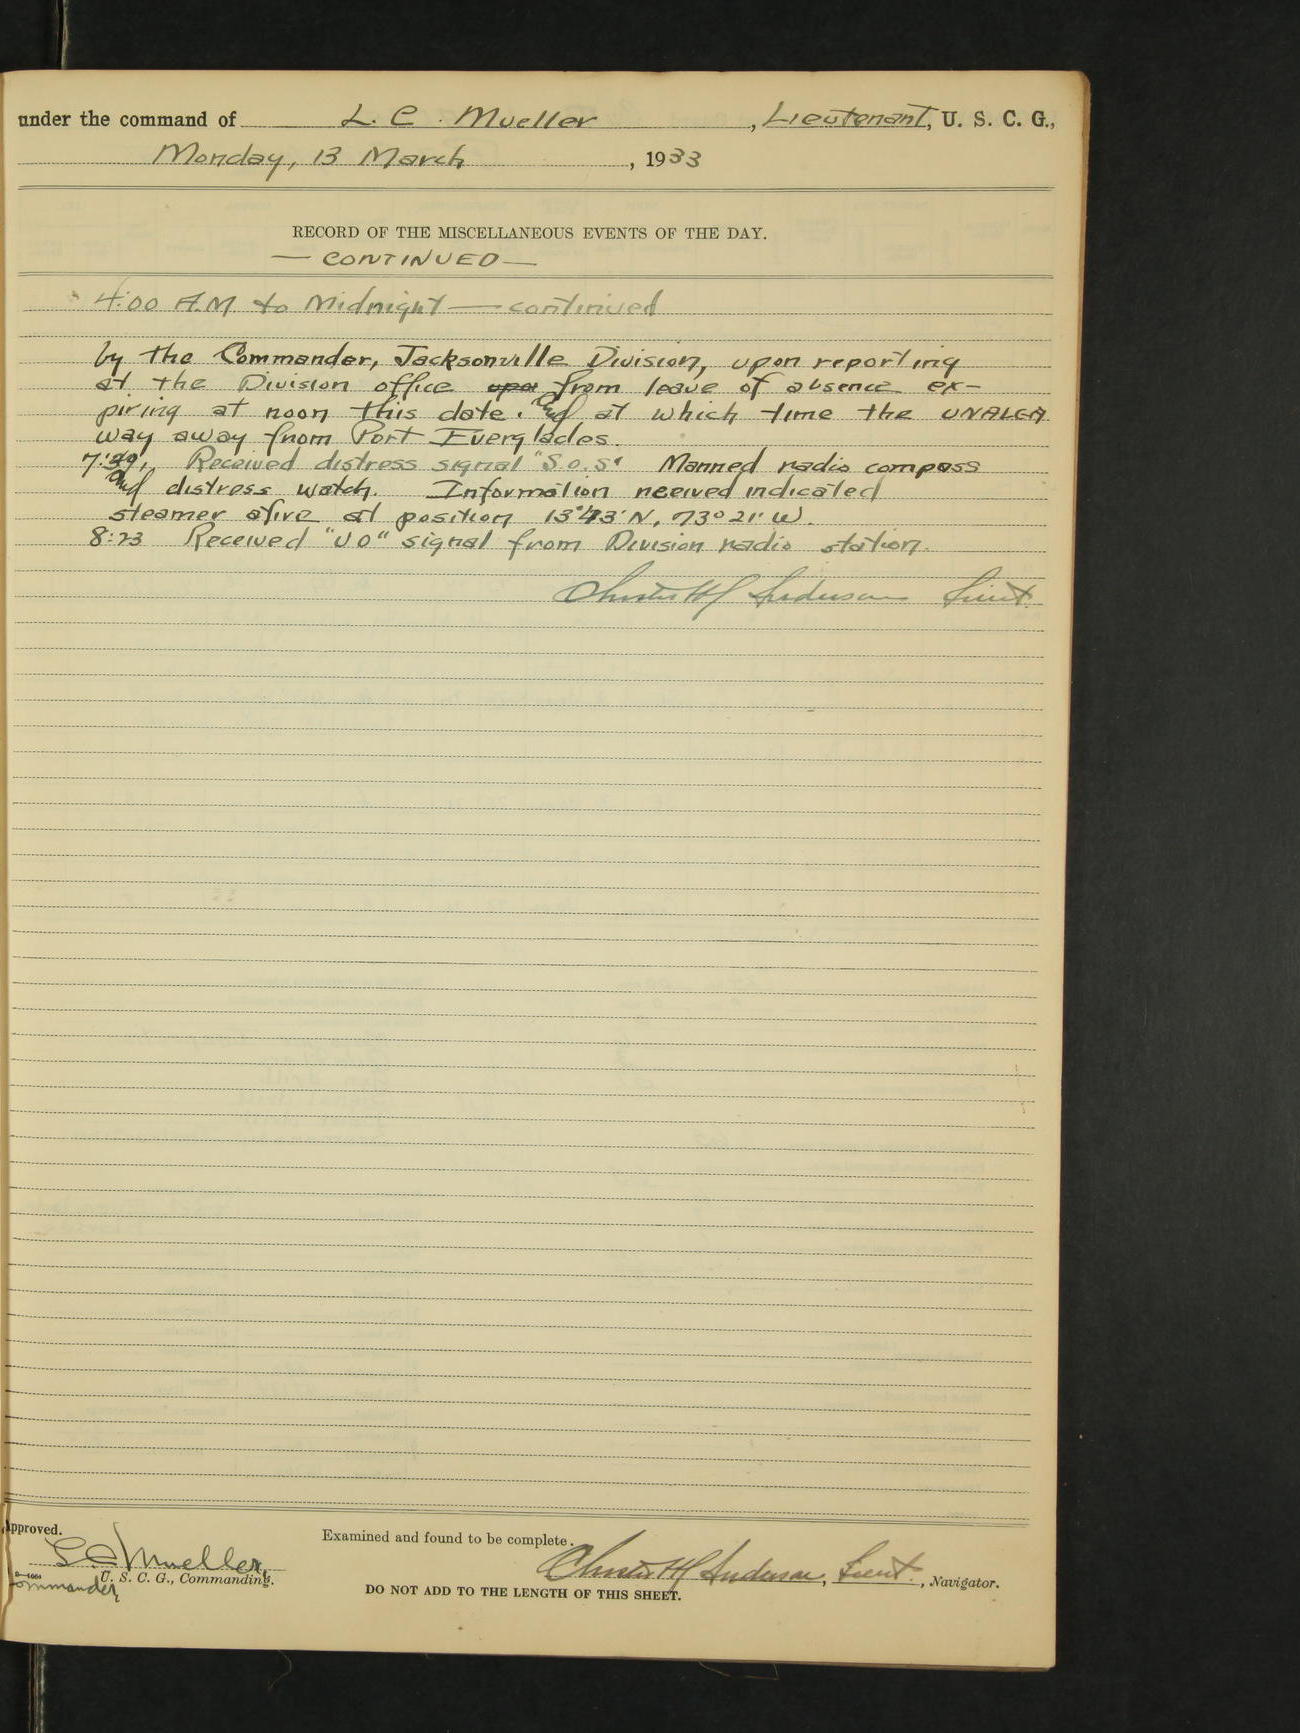 under the command of L. C. Mueller, Lieutenant, U. S. C. G.,
Monday, 13 March, 1933
RECORD OF THE MISCELLANEOUS EVENTS OF THE DAY.
— CONTINUED —
4:00 A.M. to Midnight — continued
by the Commander, Jacksonville Division, upon reporting
at the Division office upon from leave of absence ex-
piring at noon this date. and at which time the UNALGA
way away from Port Everglades.
7:39, Received distress signal "S.O.S" Manned radio compass
and distress watch. Information received indicated
steamer afire at position 13°43' N, 73° 21' W.
8:23 Received "U O" signal from Division radio station.
Chester M Anderson Lieut.
Approved.
Examined and found to be complete.
L C Mueller,
Chester M Anderson, Lieut., Navigator.
U. S. C. G., Commanding.
Commander
DO NOT ADD TO THE LENGTH OF THIS SHEET.